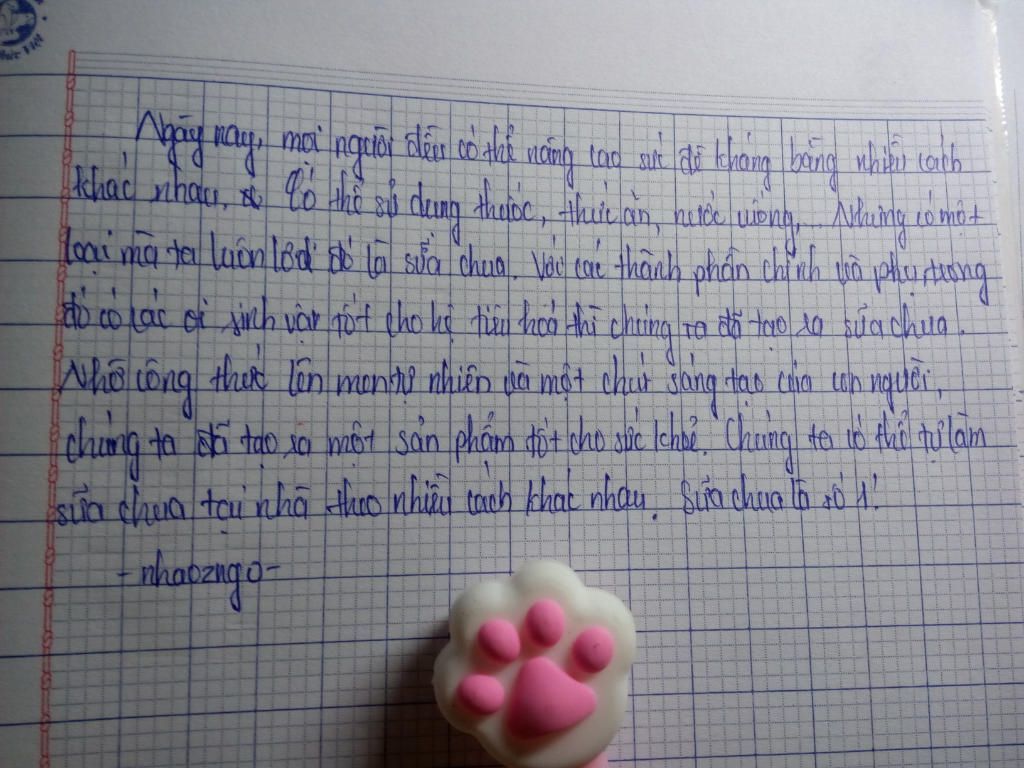 Ngày nay, mọi người đều có thể nâng cao sức đề kháng bằng nhiều cách
khác nhau. Có thể sử dụng thuốc, thức ăn, nước uống,... Nhưng có một
loại mà ta luôn có đó là sữa chua. Với các thành phần chính và phụ trong
đó có các vi sinh vật tốt cho hệ tiêu hoá thì chúng ta đã tạo ra sữa chua.
Nhờ công thức lên men tự nhiên và một chút sáng tạo của con người,
chúng ta đã tạo ra một sản phẩm tốt cho sức khoẻ. Chúng ta có thể tự làm
sữa chua tại nhà theo nhiều cách khác nhau. Sữa chua là số 1!
-nhaozngo-